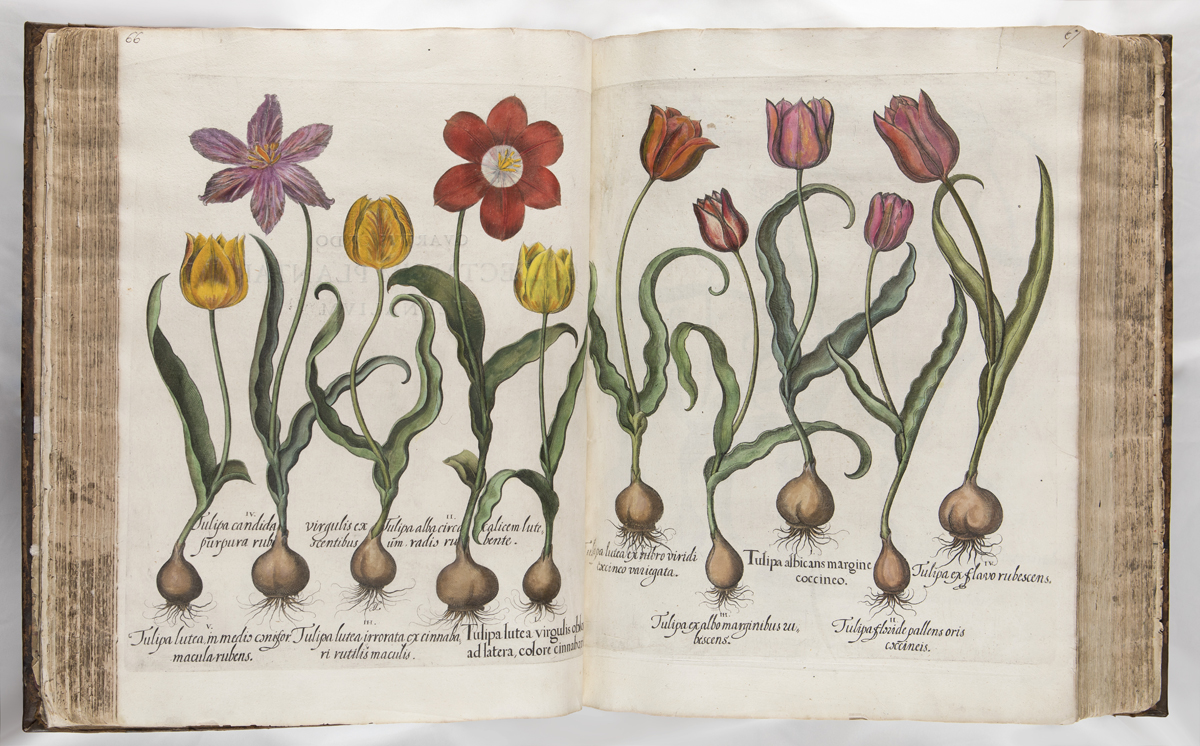 66
IV.
Tulipa candida virgulis ex
purpura rube scentibus
II.
Tulipa alba circa calicem lute,
um. radis ru bente.
V.
Tulipa lutea, in medio
macula rubens.
III.
Tulipa lutea irrorata ex cinnaba,
ri rutilis maculis.
Tulipa lutea virgulis
ad latera, colore
67
Tulipa lutea ex rubro viridi
coccineo variegata.
Tulipa albicans margine
coccineo.
IV.
Tulipa ex flavo rubescens.
III.
Tulipa ex albo marginibus ru,
bescens.
II.
Tulipa floride pallens oris
coccineis.